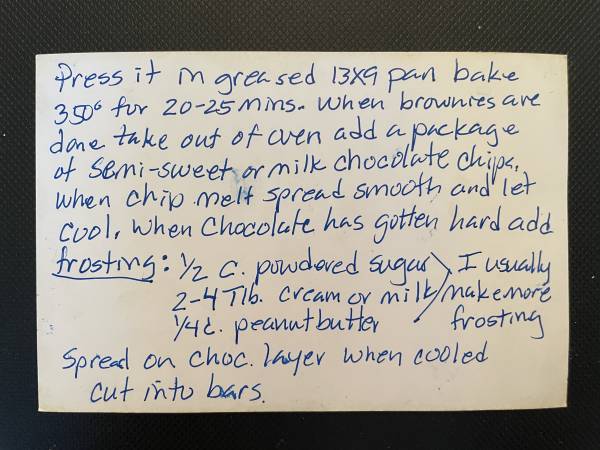 Press it in greased 13X9 pan bake
350° for 20-25 mins. When brownies are
done take out of oven add a package
of semi-sweet or milk chocolate chips.
When chip melt spread smooth and let
cool. When Chocolate has gotten hard add
frosting: 1/2 c. powdered sugar I usually
2-4 Tlb. cream or milk make more
1/4 c. peanutbutter frosting
Spread on choc. layer when cooled
cut into bars.